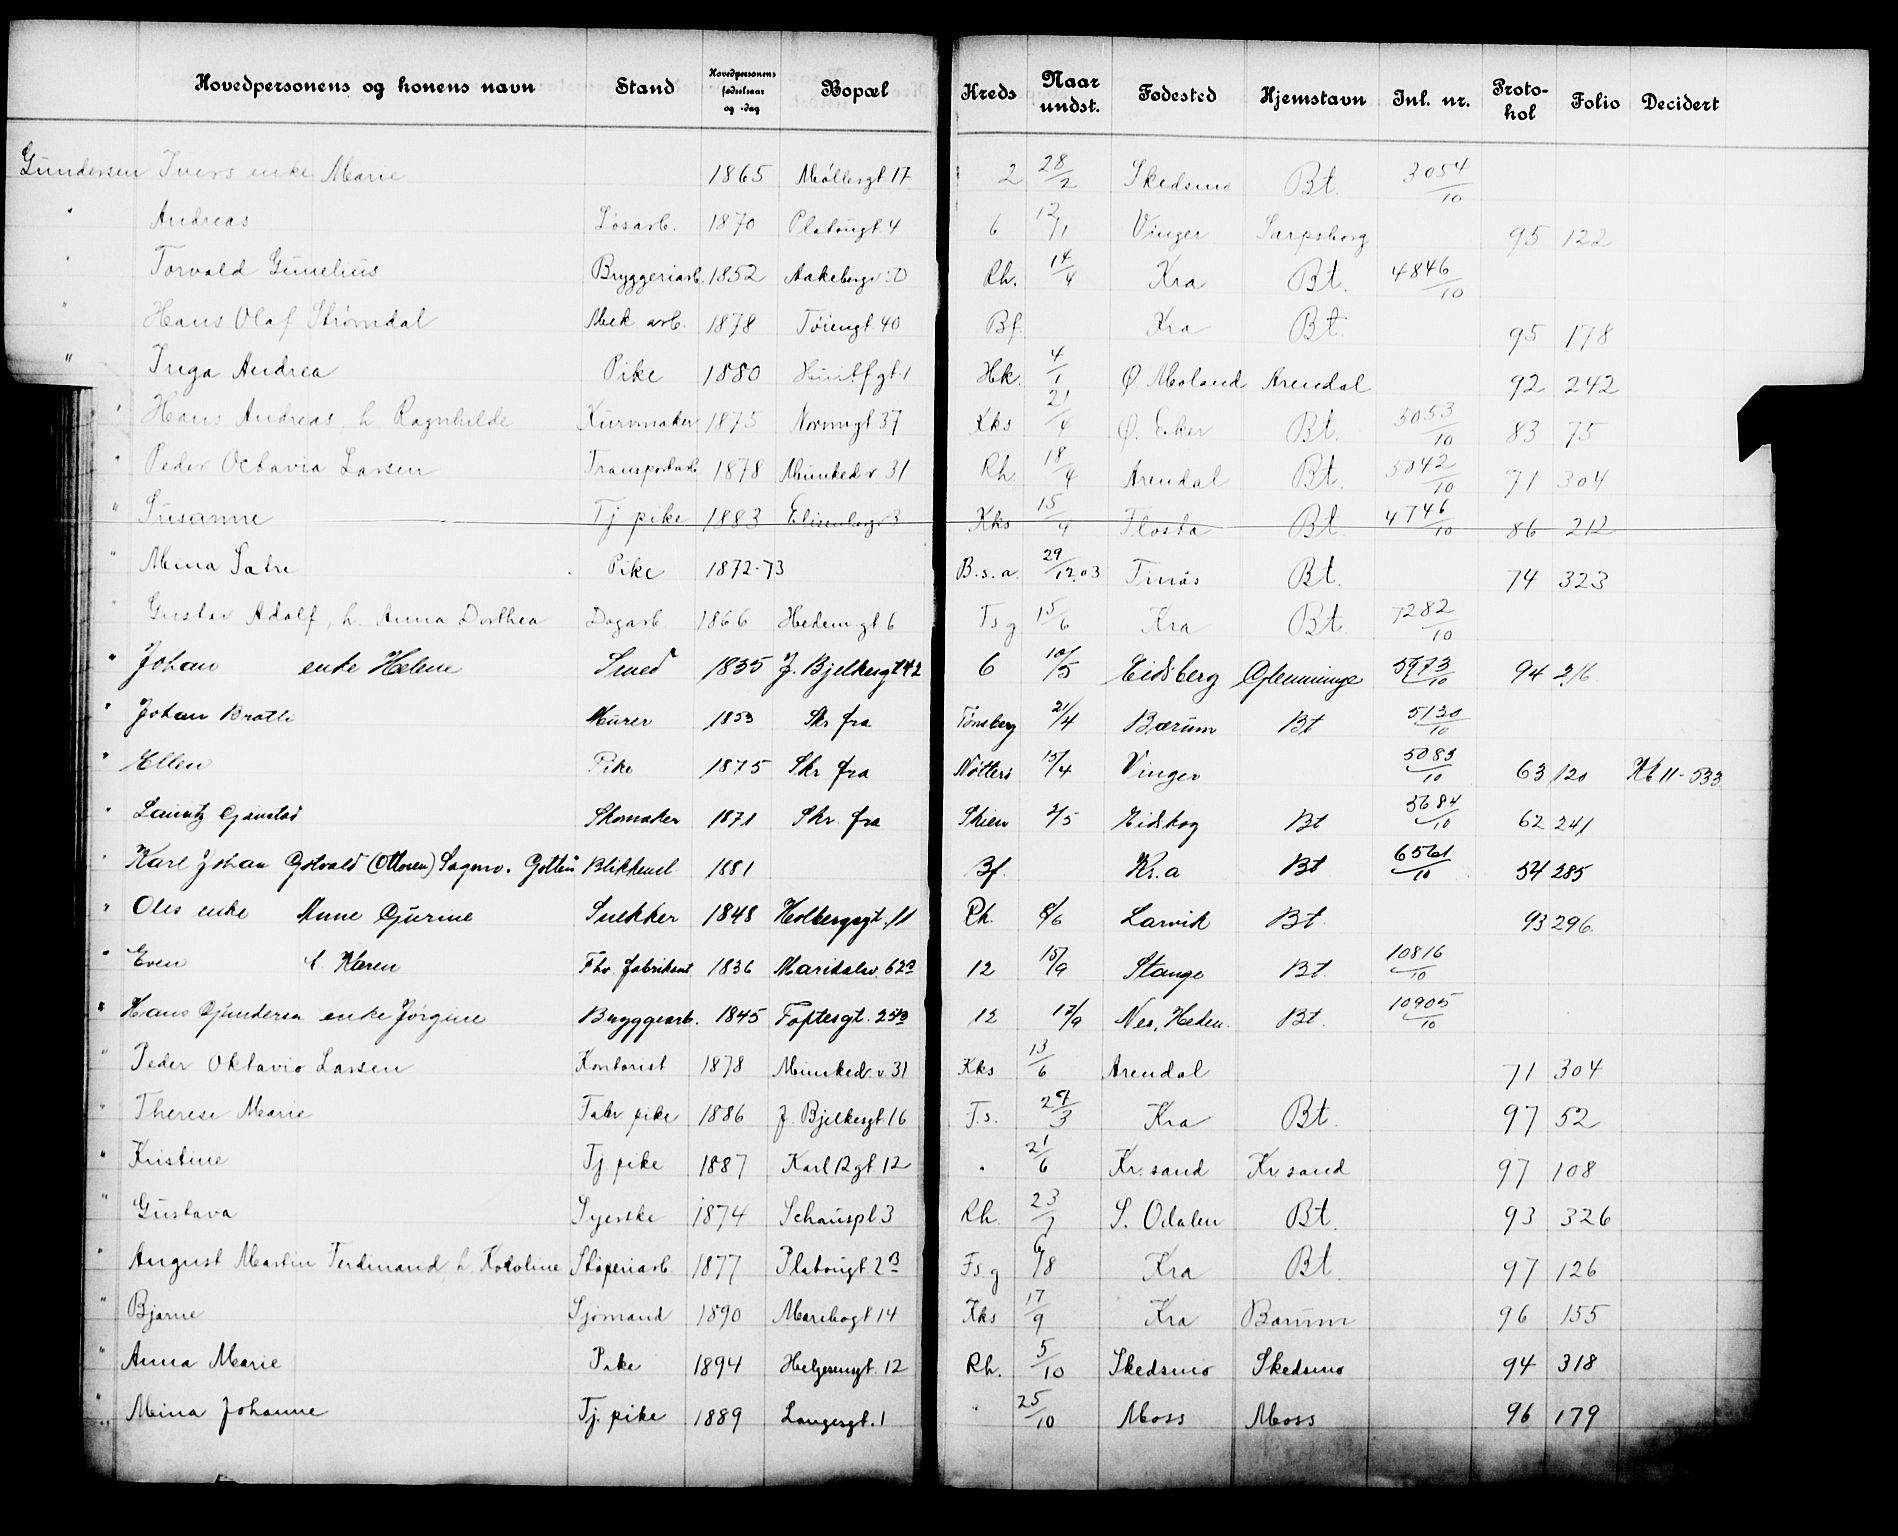 Hovedpersonens og konens navn Stand Hovedpersonens fødselsaar og -dag Bopæl Kreds Naar undst. Fødested Hjemstavn Inl. nr. Protokol Folio Decidert
Gundersen Ivers enke Marie 1865 Møllergt 17 2 28/2 Skedsmo Bt. 3054/10
" Andreas Løsarb. 1870 Platougt 4 6 12/1 Vinger Sarpsborg 95 122
" Torvald Gunelius Bryggeriarb. 1852 Aakebergv 50 Rh. 14/4 Kra Bt. 4846/10
" Hans Olaf Strømdal Mek arb. 1878 Tøiengt 40 Bf. Kra Bt. 95 178
" Inga Andrea Pike 1880 Huitfgt 1 Hk. 4/1 Ø Moland Arendal 92 242
" Hans Andreas, h. Ragnhilde Kurvmaker 1875 Normngt 37 Kks 21/4 Ø. Eker Bt. 5053/10 83 75
" Peder Octavia Larsen Transportarb. 1878 Munkedv 31 Rh 18/4 Arendal Bt. 5042/10 71 304
" Susanne Tj pike 1883 Elisenbergv 3 Kks 15/4 Flosta Bt. 4746/10 86 212
" Mina Sætre Pike 1872-73 B.s.a. 29/12.03 Tinös Bt. 74 323
" Gustav Adolf, h. Anna Dorthea Dagarb 1866 Hedemgt 6 Fsg 15/6 Kra Bt. 7282/10
" Johan enke Helene Smed 1835 J. Bjelkesgt 42 6 10/5 Eidsberg Glemminge 5973/10 94 216
" Johan Bratli Murer 1853 Skr fra Tønsberg 21/4 Bærum Bt 5130/10
" Ellen Pike 1875 Skr fra Nötterö 15/4 Vinger 5083/10 63 120 Kb 11-533
" Lauritz Skomaker 1871 Skr. fra Skien 2/5 Eidskog Bt 5684/10 62 241
" Karl Johan Gotvald (Ottosen) Blikkensl 1881 Bf. Kr.a Bt 6561/10 54 285
" Oles enke Anne Gurine Snekker 1848 Holbergsgt 11 Rh. 8/6 Larvik Bt. 93 296
" Even h Karen Fhv fabrikant 1836 Maridalsv. 62a 12 15/9 Stange Bt. 10816/10
" Hans Gunderen enke Jørgine Bryggearb. 1845 Toftesgt. 12 17/9 Nes, Hedm. Bt. 10905/10
" Peder Oktavio Larsen Kontorist 1878 Munkedv. 31 Kks 13/6 Arendal 71 304
" Therese Marie Fabr pike 1886 J. Bjelkesgt 16 F.s. 24/3 Kra Bt. 97 52
" Kristine Tj pike 1887 Karl 12 gt 12 " 21/6 Kr.sand Kr.sand 97 108
" Gustava Syerske 1874 Schauspl 3 Rh. 23/7 S. Odalen Bt. 93 326
" August Martin Ferdinand, h Karoline Støperiarb. 1877 Platougt 2B Fsg 6/8 Kra Bt. 97 126
" Bjarne Sjømand 1890 Maribogt 14 Kks 17/9 Kra Bærum 96 155
" Anna Marie Pike 1894 Helgesensgt. 12 Rh. 5/10 Skedsmo Skedsmo 94 318
" Mina Johanne Tj. pike 1889 Langesgt. 1 " 25/10 Moss Moss 96 179